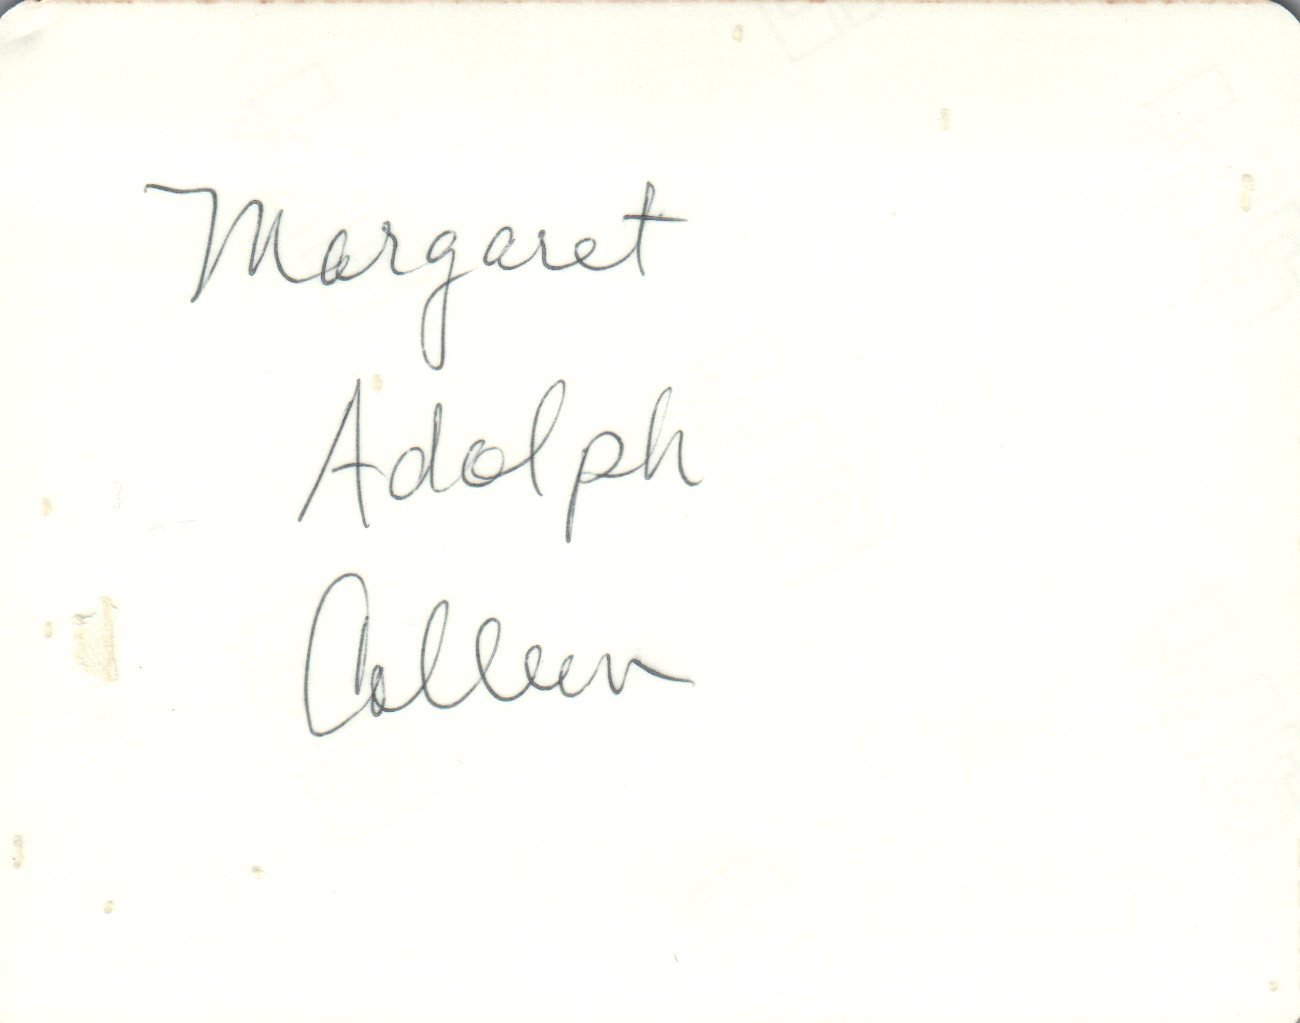 Margaret
Adolph
Colleen